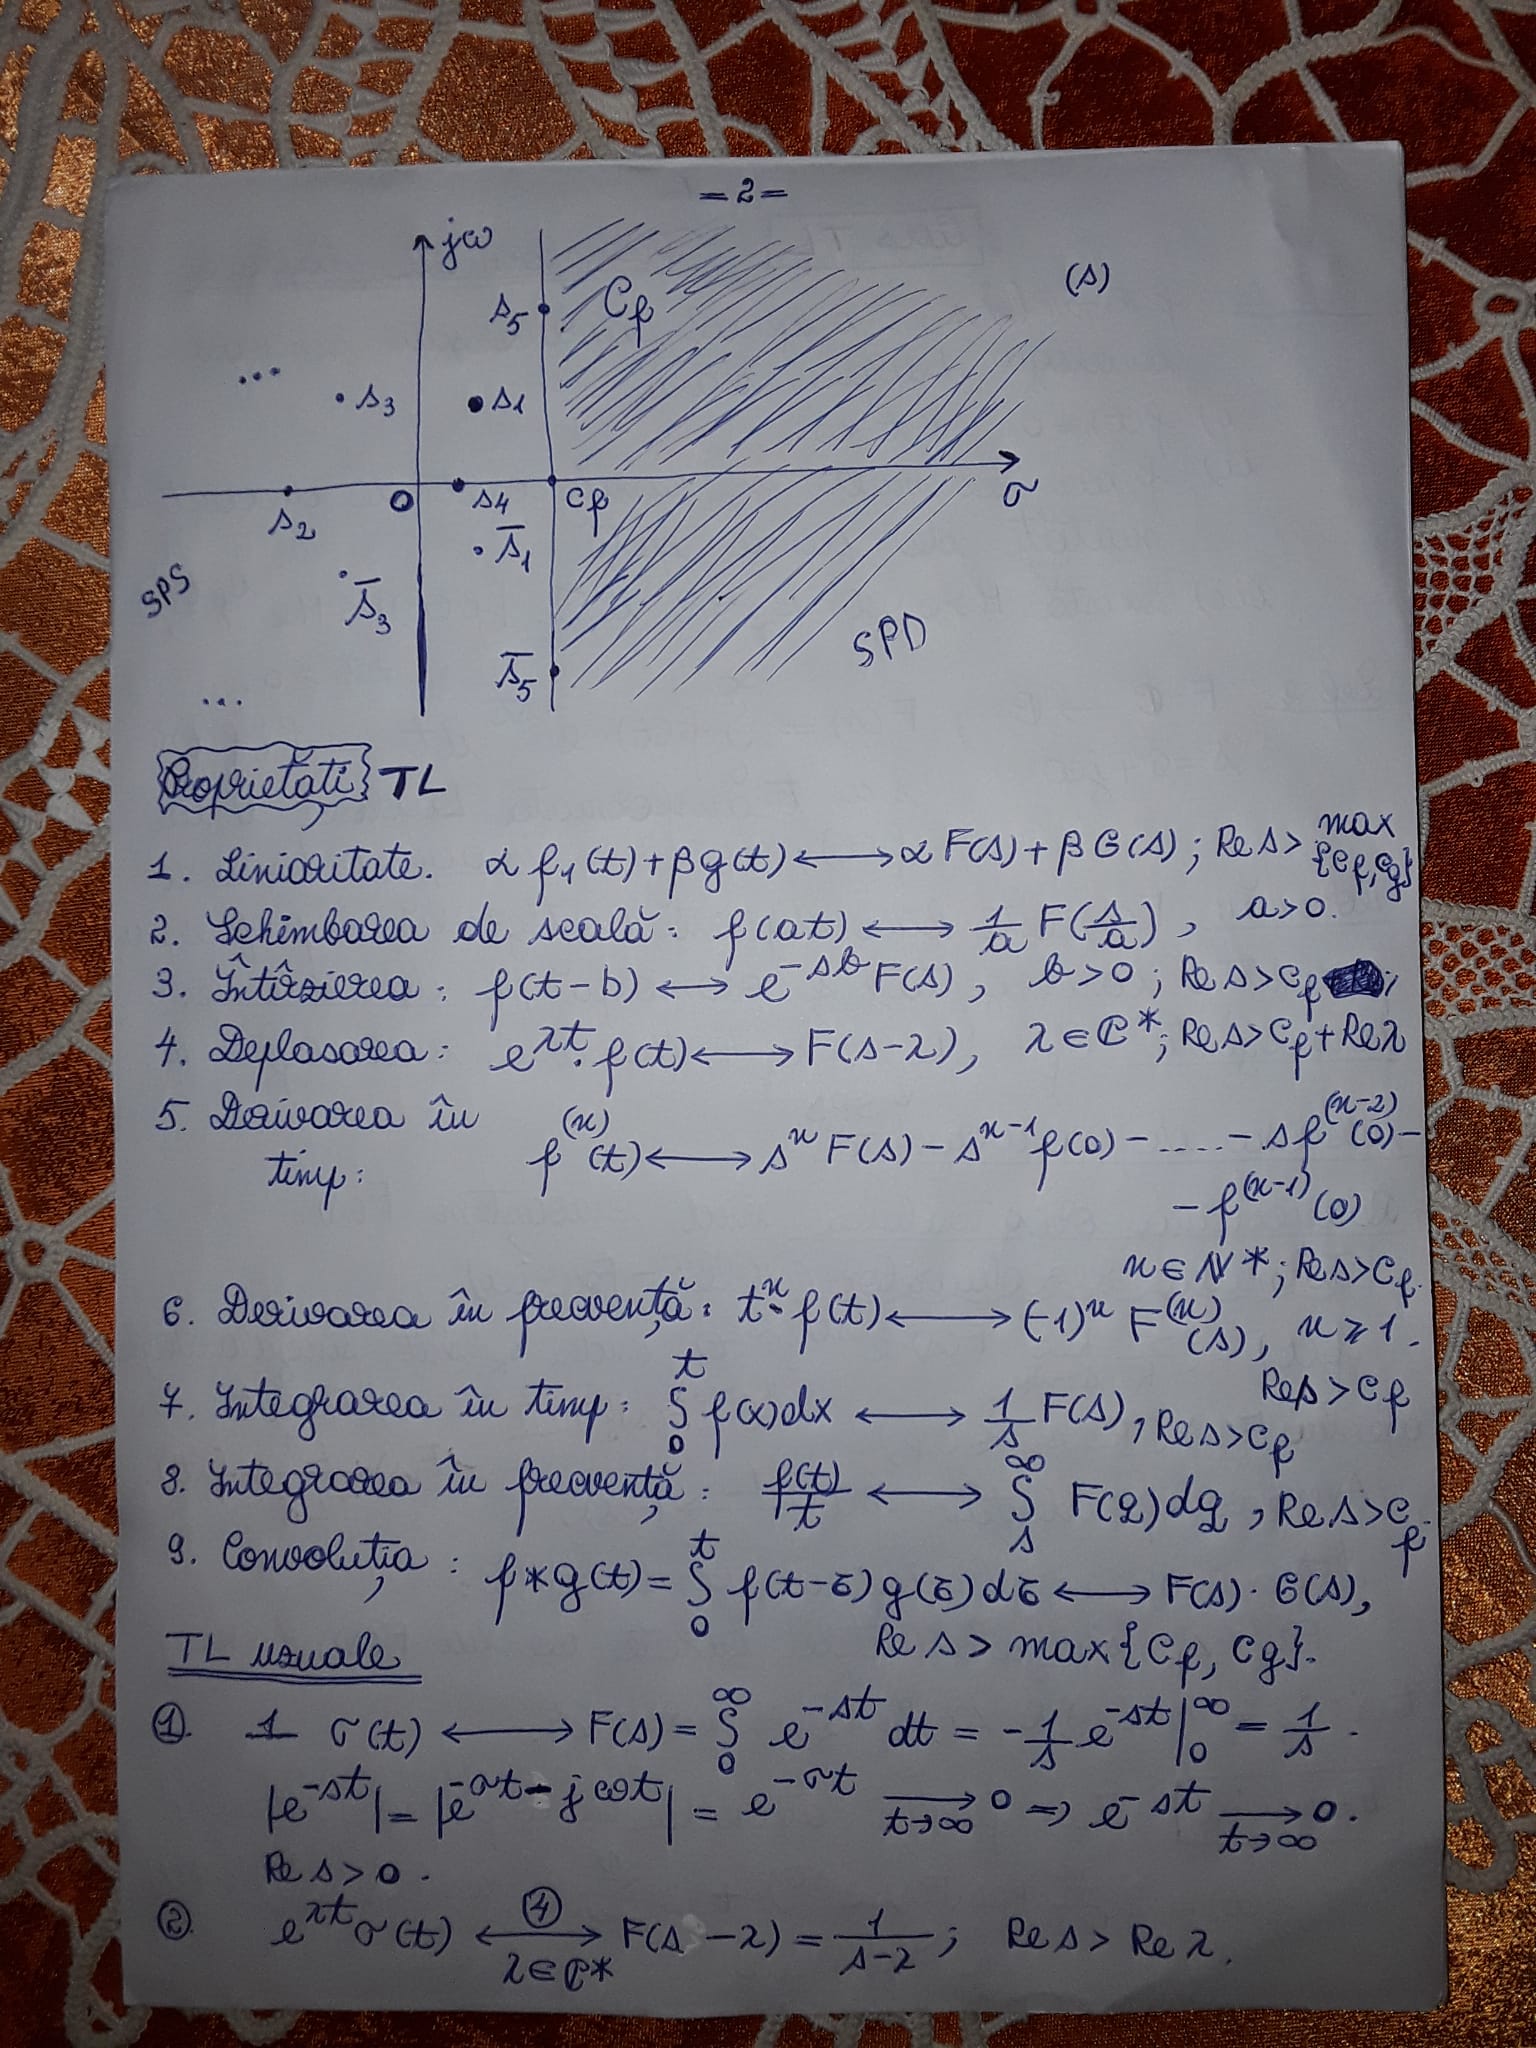 =2=
jω
(s)
s5
Cf
...
s3
s1
O
s4
cf
σ
s2
s̄1
SPS
s̄3
SPD
s̄5
...
Proprietăți TL
1. Liniaritate. α f1(t)+βg(t) ⟷ α F(s)+βG(s); Re s> max {cf, cg}
2. Schimbarea de scală: f(at) ⟷ 1/a F(s/a), a>0.
3. Întârzierea: f(t-b) ⟷ e^{-sb} F(s), b>0; Re s>cf;
4. Deplasarea: e^{λt}·f(t) ⟷ F(s-λ), λ∈ℂ*; Re s>cf+Re λ
5. Derivarea în timp: f^{(n)}(t) ⟷ s^n F(s) - s^{n-1} f(0) - ..... - s f^{(n-2)}(0) -
- f^{(n-1)}(0)
n∈ℕ*; Re s>cf.
6. Derivarea în frecvență: t^n·f(t) ⟷ (-1)^n F^{(n)}(s), n≥1.
Re s>cf
7. Integrarea în timp: ∫_0^t f(x)dx ⟷ 1/s F(s), Re s>cf
8. Integrarea în frecvență: f(t)/t ⟷ ∫_s^∞ F(q)dq, Re s>cf.
9. Convoluția: f*g(t) = ∫_0^t f(t-τ)g(τ)dτ ⟷ F(s)·G(s),
Re s > max{cf, cg}.
TL uzuale
① 1 σ(t) ⟷ F(s) = ∫_0^∞ e^{-st} dt = -1/s e^{-st}|_0^∞ = 1/s.
|e^{-st}| = |e^{-σt-jωt}| = e^{-σt} →_{t→∞} 0 ⇒ e^{-st} →_{t→∞} 0.
Re s>0.
② e^{λt} σ(t) ⟷^{④}_{λ∈ℂ*} F(s-λ) = 1/(s-λ); Re s > Re λ.